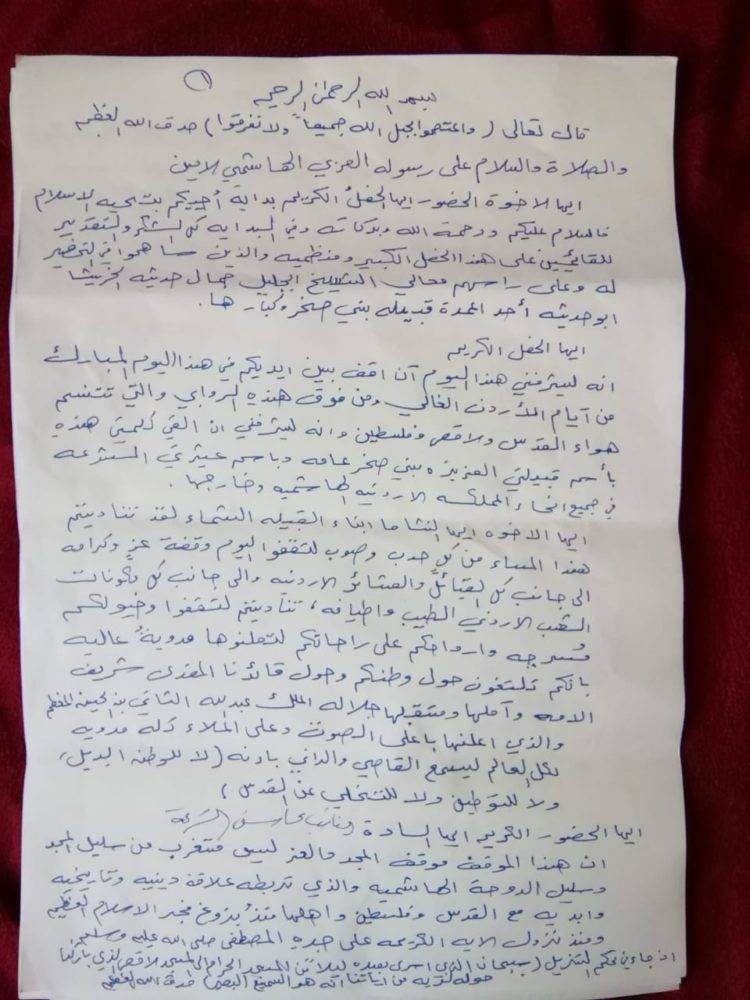 ١
بسم الله الرحمن الرحيم
قال تعالى (واعتصموا بحبل الله جميعاً ولا تفرقوا) صدق الله العظيم
والصلاة والسلام على رسوله العربي الهاشمي الامين
ايها الاخوة الحضور ايها الحفل الكريم بداية أحييكم بتحية الاسلام
فالسلام عليكم ورحمة الله وبركاته وفي البدايه كل الشكر والتقدير
للقائمين على هذا الحفل الكبير ومنظميه والذين ساهموا في التحضير
له وعلى راسهم معالي الشيخ الجليل جمال حديثه الخريشا
ابو حديثه أحد اعمدة قبيله بني صخر وكبارها.
ايها الحفل الكريم
انه ليشرفني هذا اليوم أن اقف بين ايديكم في هذا اليوم المبارك
من أيام الأردن الغالي ومن فوق هذه الروابي والتي تتنسم
هواء القدس والاقصى وفلسطين وانه ليشرفني ان القي كلمتي هذه
بأسم قبيلتي العزيزه بني صخر عامه وباسم عشيرتي المنتشره
في جميع انحاء المملكه الاردنيه الهاشميه وخارجها.
ايها الاخوه ايها النشاما ابناء القبيله الشماء لقد تناديتم
هذا المساء من كل حدب وصوب لتقفوا اليوم وقفة عزٍ وكرامه
الى جانب كل القبائل والعشائر الاردنيه والى جانب كل مكونات
الشعب الاردني الطيب واطيافه، تناديتم لتقفوا وخيولكم
مُسرجه وارواحكم على راحاتكم لتعلنوها مدويةً عاليه
بانكم تلتفون حول وطنكم وحول قائدنا المفدى شريف
الامه وأملها ومستقبلها جلاله الملك عبدالله الثاني بن الحسين المعظم
والذي اعلنها باعلى الصوت وعلى الملاء كله مدويه
لكل العالم ليسمع القاصي والداني بانه (لا للوطن البديل،
ولا للتوطين ولا للتخلي عن القدس)
ايها الحضور الكريم ايها السادة
ان هذا الموقف موقف المجد والعز ليس مستغرب من سليل المجد
وسليل الدوحة الهاشميه والذي تربطه علاقة دينيه وتاريخيه
وابديه مع القدس وفلسطين واهلها منذُ بزوغ فجر الاسلام العظيم
ومنذ نزول الايه الكريمه على جده المصطفى صلى الله عليه وسلم
اذ جاء في محكم التنزيل (سبحان الذي اسرى بعبده ليلاً من المسجد الحرام الى المسجد الاقصى الذي باركنا
حوله لنريه من آياتنا انه هو السميع البصير) صدق الله العظيم